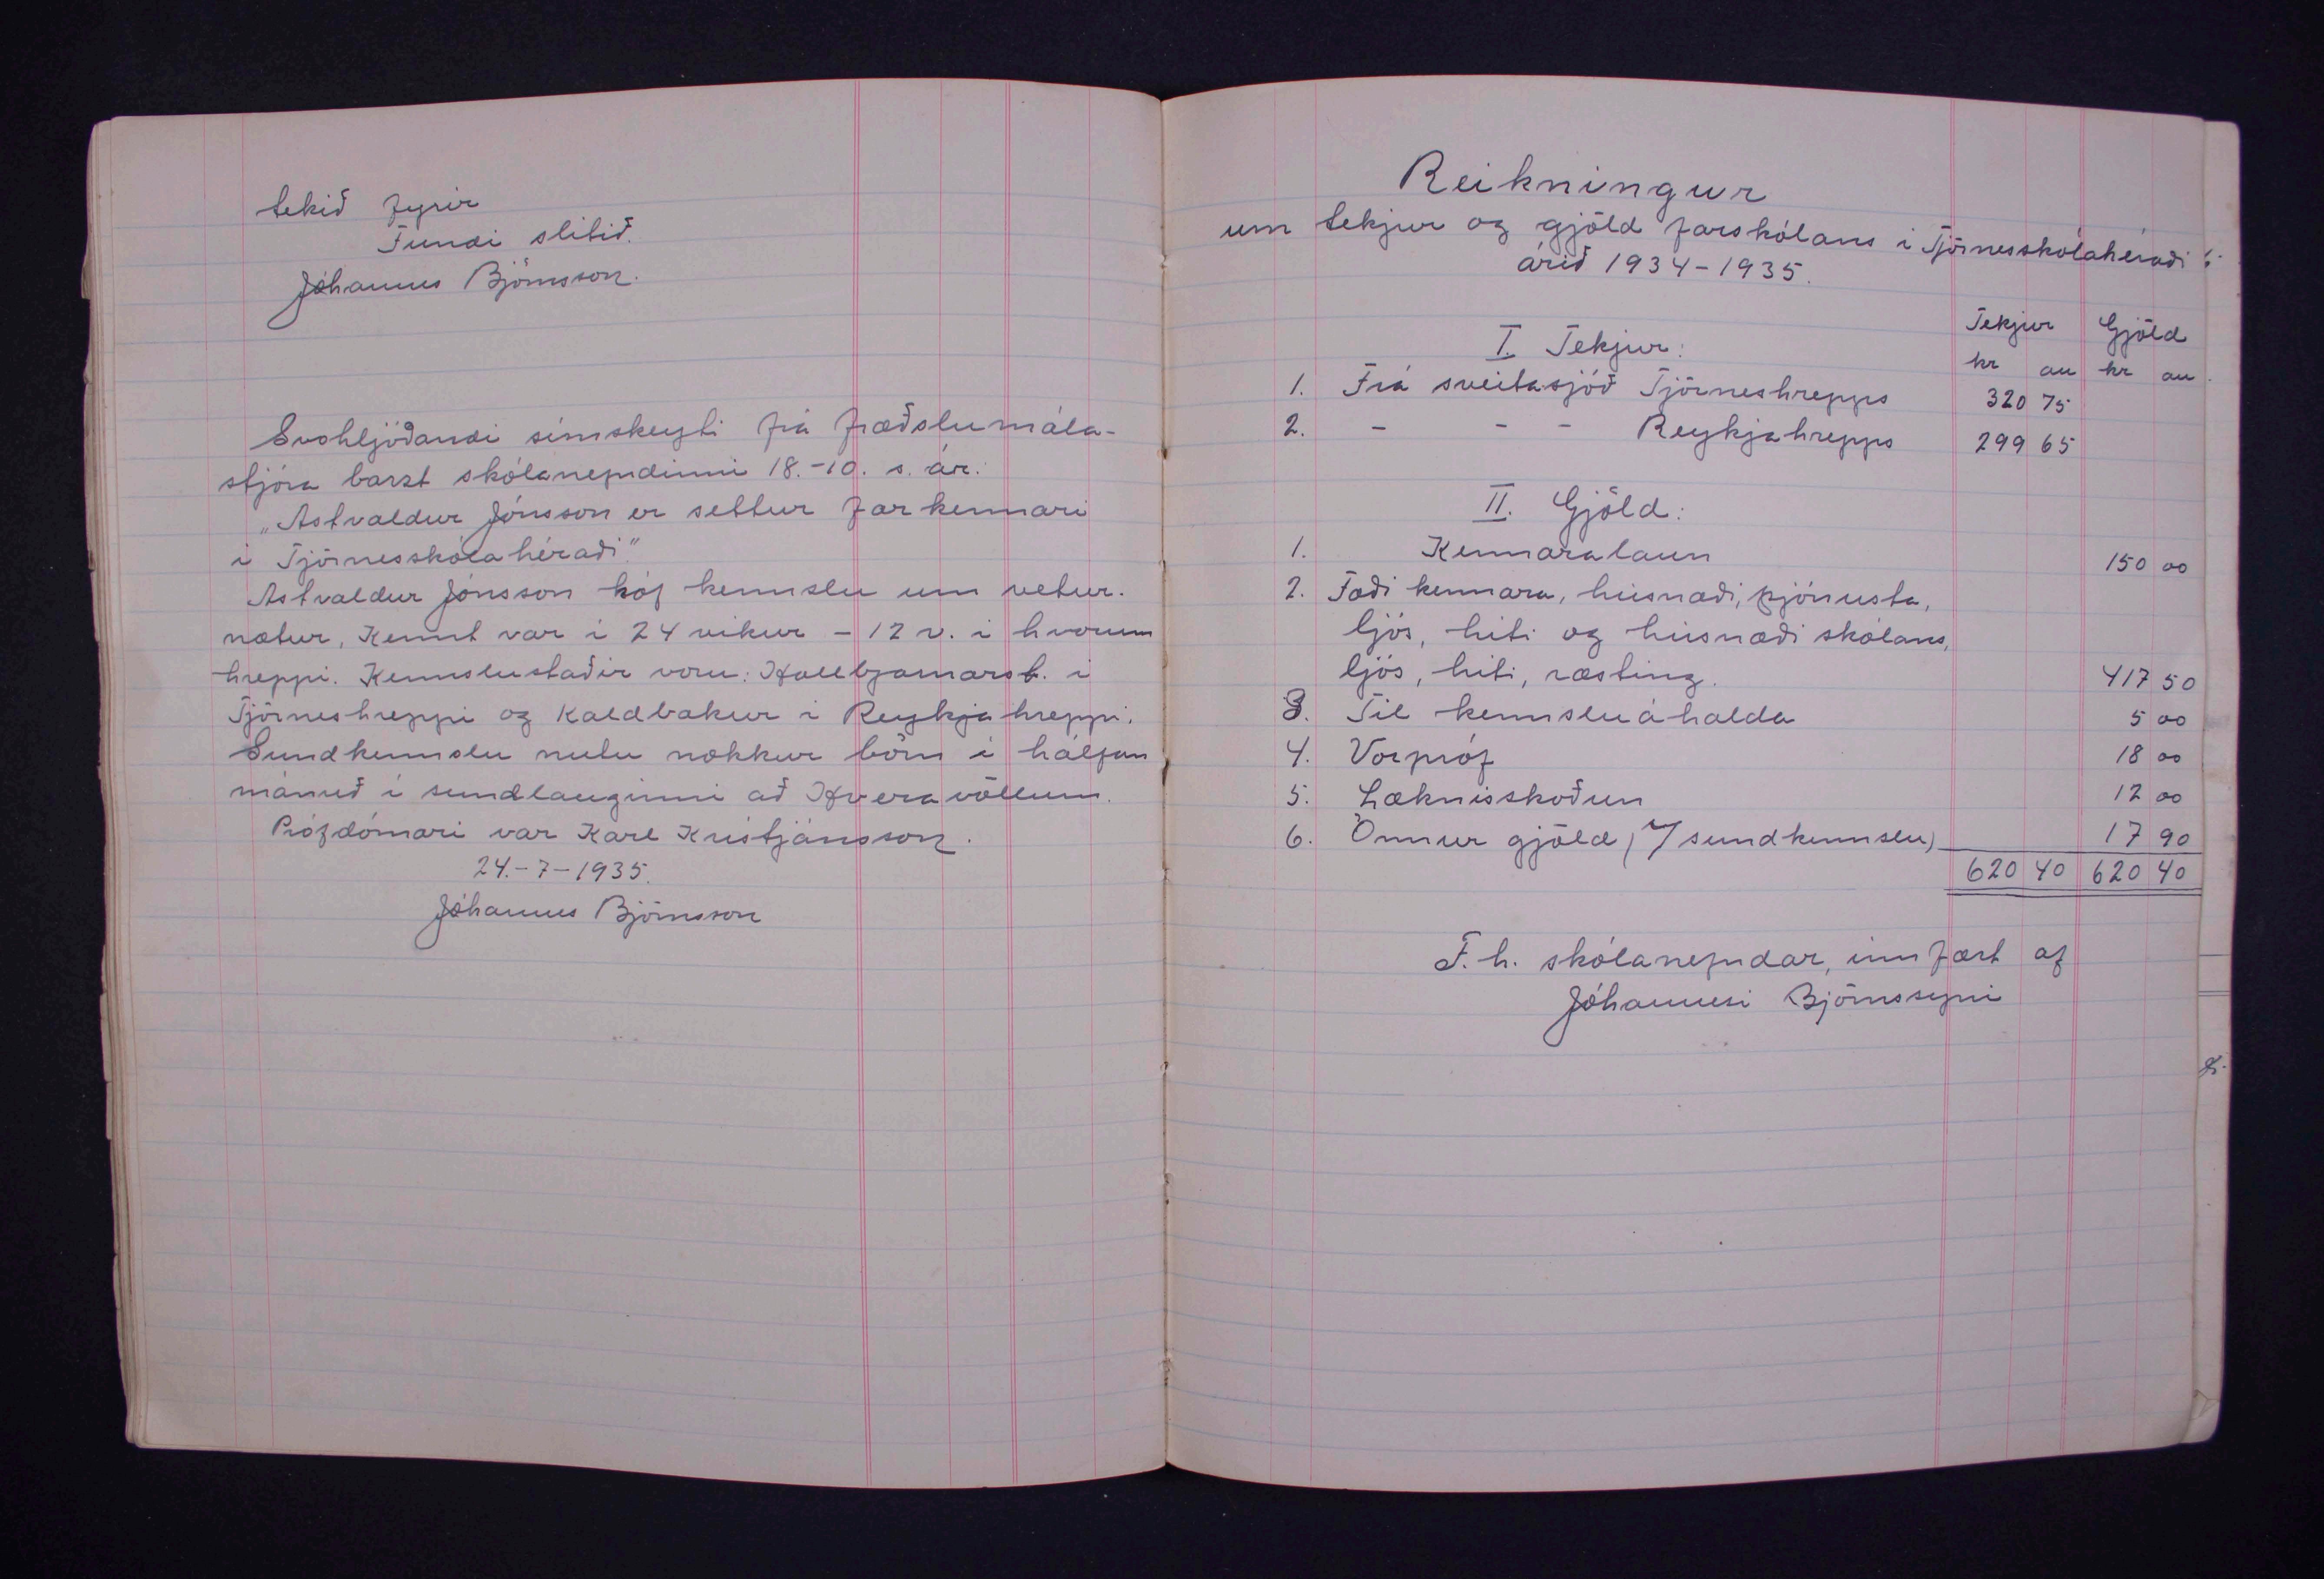 tekið fyrir
Fundi slitið.
Jóhannes Björnsson.
Svohljóðandi símskeyti frá fræðslumála-
stjóra barst skólanefndinni 18.-10. s. ár.
„Ástvaldur Jónsson er settur farkennari
í Tjörnesskólahéraði"
Ástvaldur Jónsson hóf kennslu um vetur.
nætur, Kennt var í 24 vikur - 12 v. í hvorum
hreppi. Kennslustaðir voru: Hallbjarnarst. í
Tjörneshreppi og Kaldbakur í Reykjahreppi.
Sundkennslu nutu nokkur börn í hálfan
mánuð í sundlauginni að Hveravöllum.
Prófdómari var Karl Kristjánsson.
24.-7-1935.
Jóhannes Björnsson
Reikningur
um tekjur og gjöld farskólans í Tjörnesskólahéraði
árið 1934-1935.
Tekjur Gjöld
I. Tekjur:
kr au kr au
1. Frá sveitasjóð Tjörneshrepps 320 75
2. - - - Reykjahrepps 299 65
II. Gjöld:
1. Kennaralaun 150 00
2. Fæði kennara, húsnæði, þjónusta,
ljós, hiti og húsnæði skólans,
ljós, hiti, ræsting. 417 50
3. Til kennsluáhalda 5 00
4. Vorpróf 18 00
5. Læknisskoðun 12 00
6. Önnur gjöld ( sundkennslu) 17 90
620 40 620 40
F. h. skólanefndar, innfært af
Jóhannesi Björnssyni